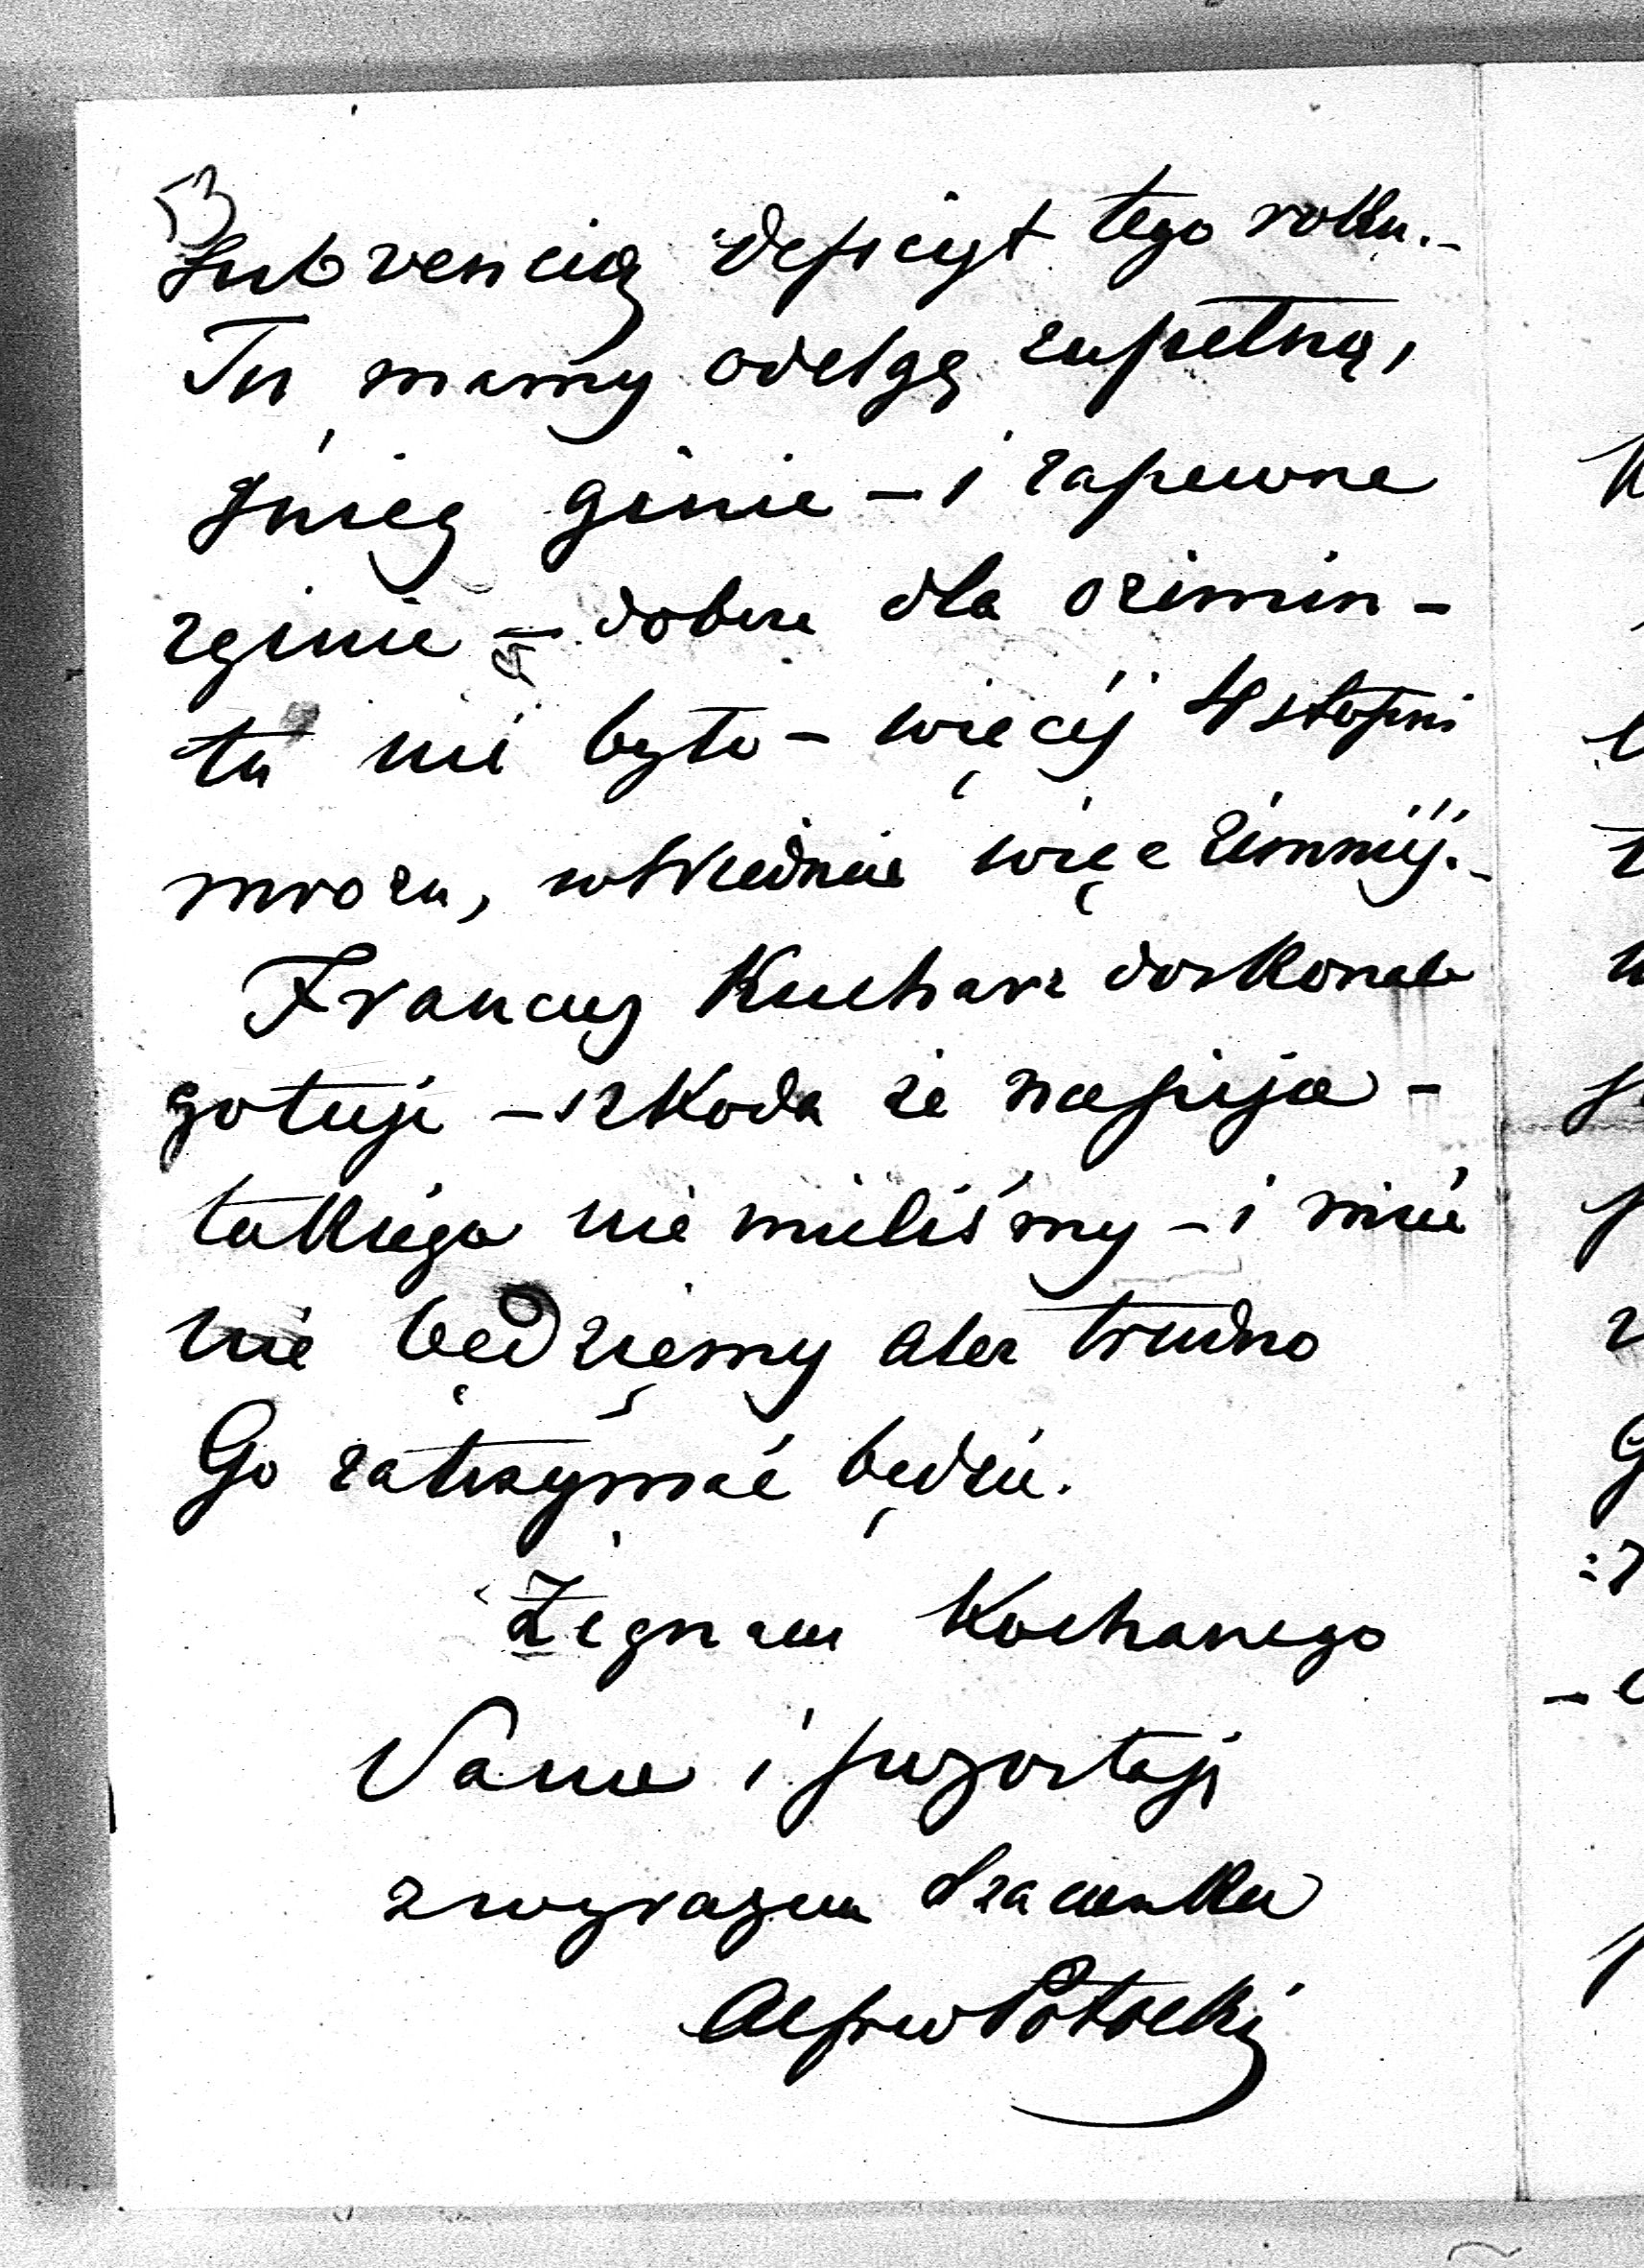 53
Subvencią deficyt tego roku.-
Tu mamy odelgę zupełną,
śnieg ginie - i zapewne
zginie - dobrze dla ozimin -
tu nie było - więcéj 4 stopni
mrozu, w Wiedniu więc zimniéj.-
Francuz Kucharz doskonale
gotuje - szkoda że napija -
takiego nie mieliśmy - i mieć
nie będziemy ale trudno
Go zatrzymać będzie.
Żegnam Kochanego
Pana i pozostaję
z wyrazem Szacunku
Alfred Potocki